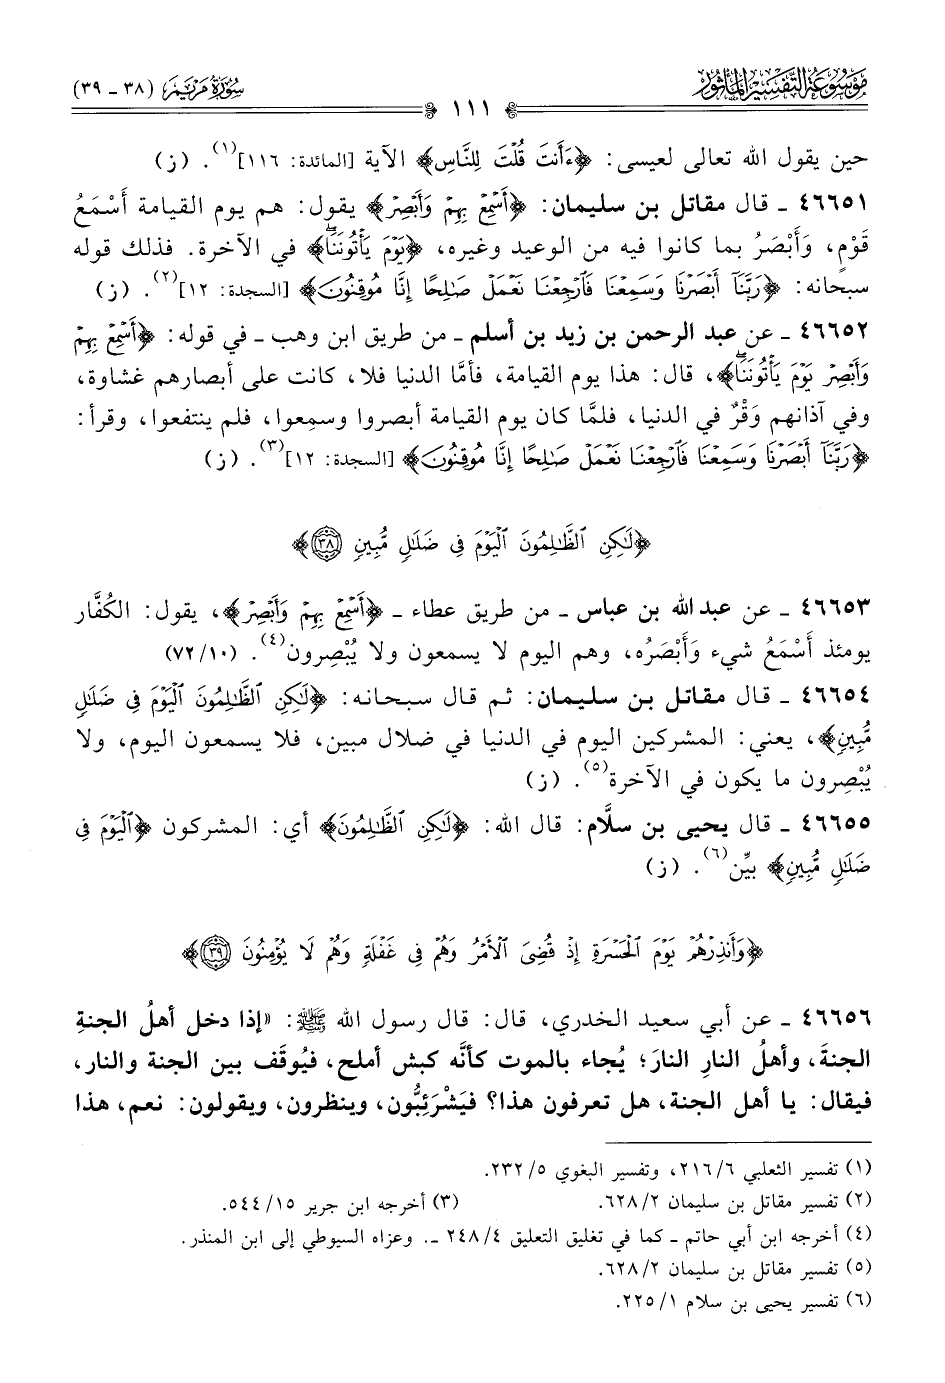 موسوعة التفسير المأثور
سورة مريم (٣٨ - ٣٩)
١١١
حين يقول الله تعالى لعيسى: ﴿ءَأَنتَ قُلْتَ لِلنَّاسِ﴾ الآية [المائدة: ١١٦](١). (ز)
٤٦٦٥١ - قال مقاتل بن سليمان: ﴿أَسْمِعْ بِهِمْ وَأَبْصِرْ﴾ يقول: هم يوم القيامة أَسْمَعُ
قَوْمٍ، وَأَبْصَرُ بما كانوا فيه من الوعيد وغيره، ﴿يَوْمَ يَأْتُونَنَاۖ﴾ في الآخرة. فذلك قوله
سبحانه: ﴿رَبَّنَآ أَبْصَرْنَا وَسَمِعْنَا فَٱرْجِعْنَا نَعْمَلْ صَٰلِحًا إِنَّا مُوقِنُونَ﴾ [السجدة: ١٢](٢). (ز)
٤٦٦٥٢ - عن عبد الرحمن بن زيد بن أسلم - من طريق ابن وهب - في قوله: ﴿أَسْمِعْ بِهِمْ
وَأَبْصِرْ يَوْمَ يَأْتُونَنَاۖ﴾، قال: هذا يوم القيامة، فأمَّا الدنيا فلا، كانت على أبصارهم غشاوة،
وفي آذانهم وَقْرٌ في الدنيا، فلمَّا كان يوم القيامة أبصروا وسمِعوا، فلم ينتفعوا، وقرأ:
﴿رَبَّنَآ أَبْصَرْنَا وَسَمِعْنَا فَٱرْجِعْنَا نَعْمَلْ صَٰلِحًا إِنَّا مُوقِنُونَ﴾ [السجدة: ١٢](٣). (ز)
﴿لَٰكِنِ ٱلظَّٰلِمُونَ ٱلْيَوْمَ فِى ضَلَٰلٍ مُّبِينٍ ٣٨﴾
٤٦٦٥٣ - عن عبد الله بن عباس - من طريق عطاء - ﴿أَسْمِعْ بِهِمْ وَأَبْصِرْ﴾، يقول: الكُفَّار
يومئذ أَسْمَعُ شيء وَأَبْصَرُه، وهم اليوم لا يسمعون ولا يُبْصِرون(٤). (١٠/ ٧٢)
٤٦٦٥٤ - قال مقاتل بن سليمان: ثم قال سبحانه: ﴿لَٰكِنِ ٱلظَّٰلِمُونَ ٱلْيَوْمَ فِى ضَلَٰلٍ
مُّبِينٍ﴾، يعني: المشركين اليوم في الدنيا في ضلال مبين، فلا يسمعون اليوم، ولا
يُبْصِرون ما يكون في الآخرة(٥). (ز)
٤٦٦٥٥ - قال يحيى بن سلَّام: قال الله: ﴿لَٰكِنِ ٱلظَّٰلِمُونَ﴾ أي: المشركون ﴿ٱلْيَوْمَ فِى
ضَلَٰلٍ مُّبِينٍ﴾ بيِّن(٦). (ز)
﴿وَأَنذِرْهُمْ يَوْمَ ٱلْحَسْرَةِ إِذْ قُضِىَ ٱلْأَمْرُ وَهُمْ فِى غَفْلَةٍ وَهُمْ لَا يُؤْمِنُونَ ٣٩﴾
٤٦٦٥٦ - عن أبي سعيد الخدري، قال: قال رسول الله ﷺ: «إذا دخل أهلُ الجنةِ
الجنةَ، وأهلُ النارِ النارَ؛ يُجاء بالموت كأنَّه كبش أملح، فيُوقَف بين الجنة والنار،
فيقال: يا أهل الجنة، هل تعرفون هذا؟ فيَشْرَئِبُّون، وينظرون، ويقولون: نعم، هذا
(١) تفسير الثعلبي ٦/ ٢١٦، وتفسير البغوي ٥/ ٢٣٢.
(٢) تفسير مقاتل بن سليمان ٢/ ٦٢٨. (٣) أخرجه ابن جرير ١٥/ ٥٤٤.
(٤) أخرجه ابن أبي حاتم - كما في تغليق التعليق ٤/ ٢٤٨ -. وعزاه السيوطي إلى ابن المنذر.
(٥) تفسير مقاتل بن سليمان ٢/ ٦٢٨.
(٦) تفسير يحيى بن سلام ١/ ٢٢٥.